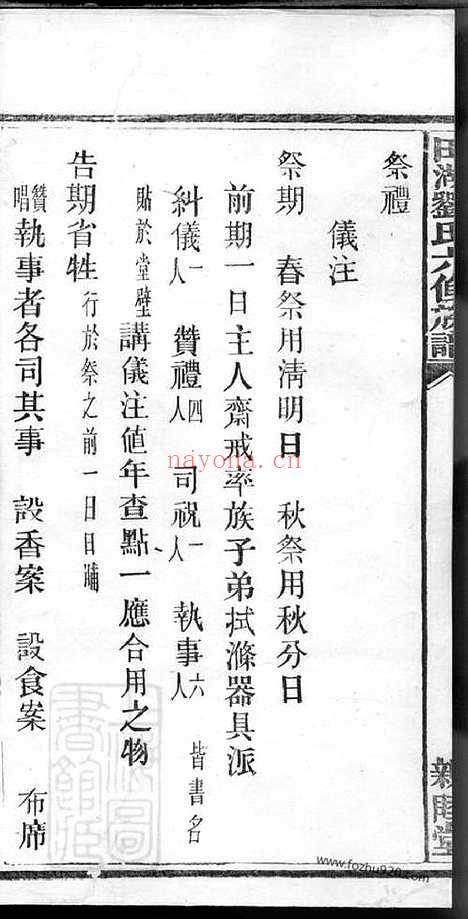 田湖劉氏六值族譜
祭禮
儀注
祭期 春祭用淸明日 秋祭用秋分日
前期一日主人齋戒率族子弟拭滌器具派
糾儀一人 贊禮四人 司祝一人 執事六人 皆書名
貼於堂壁講儀注値年查點一應合用之物
告期省牲行於祭之前一日日晡
贊唱執事者各司其事 設香案 設食案 布席
nayona.cn
www.fozhu920.com